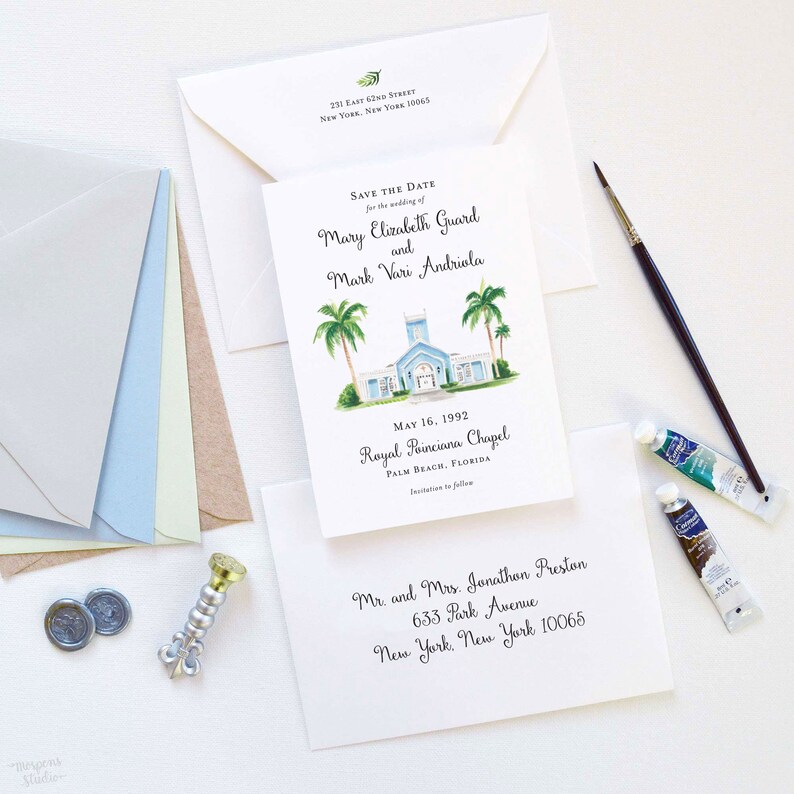 231 East 62nd Street
New York, New York 10065
Save the Date
for the wedding of
Mary Elizabeth Guard
and
Mark Vari Andriola
May 16, 1992
Royal Poinciana Chapel
Palm Beach, Florida
Invitation to follow
Mr. and Mrs. Jonathon Preston
633 Park Avenue
New York, New York 10065
Cotman
Cotman
Mospens
Studio